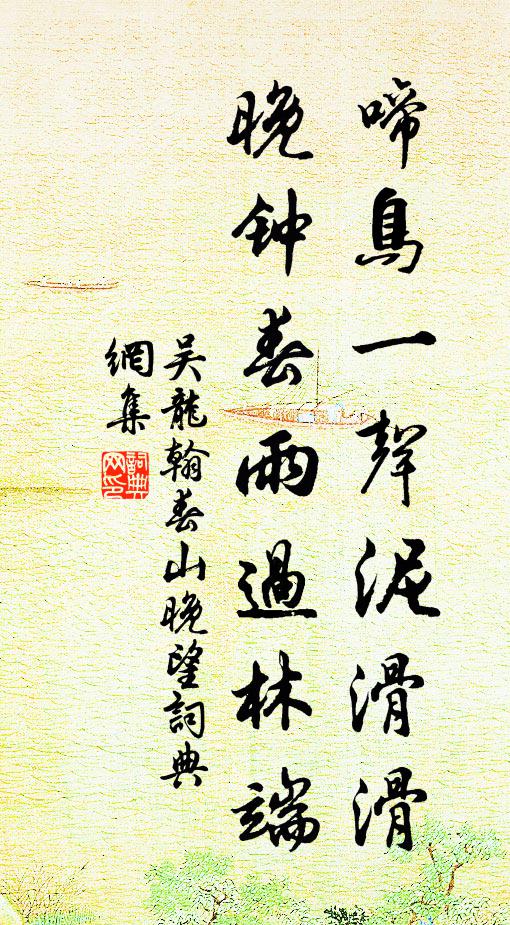 啼鳥一聲泥滑滑
晚钟春雨過林端
吴龍翰春山晚望詞典
網集
詞典網印